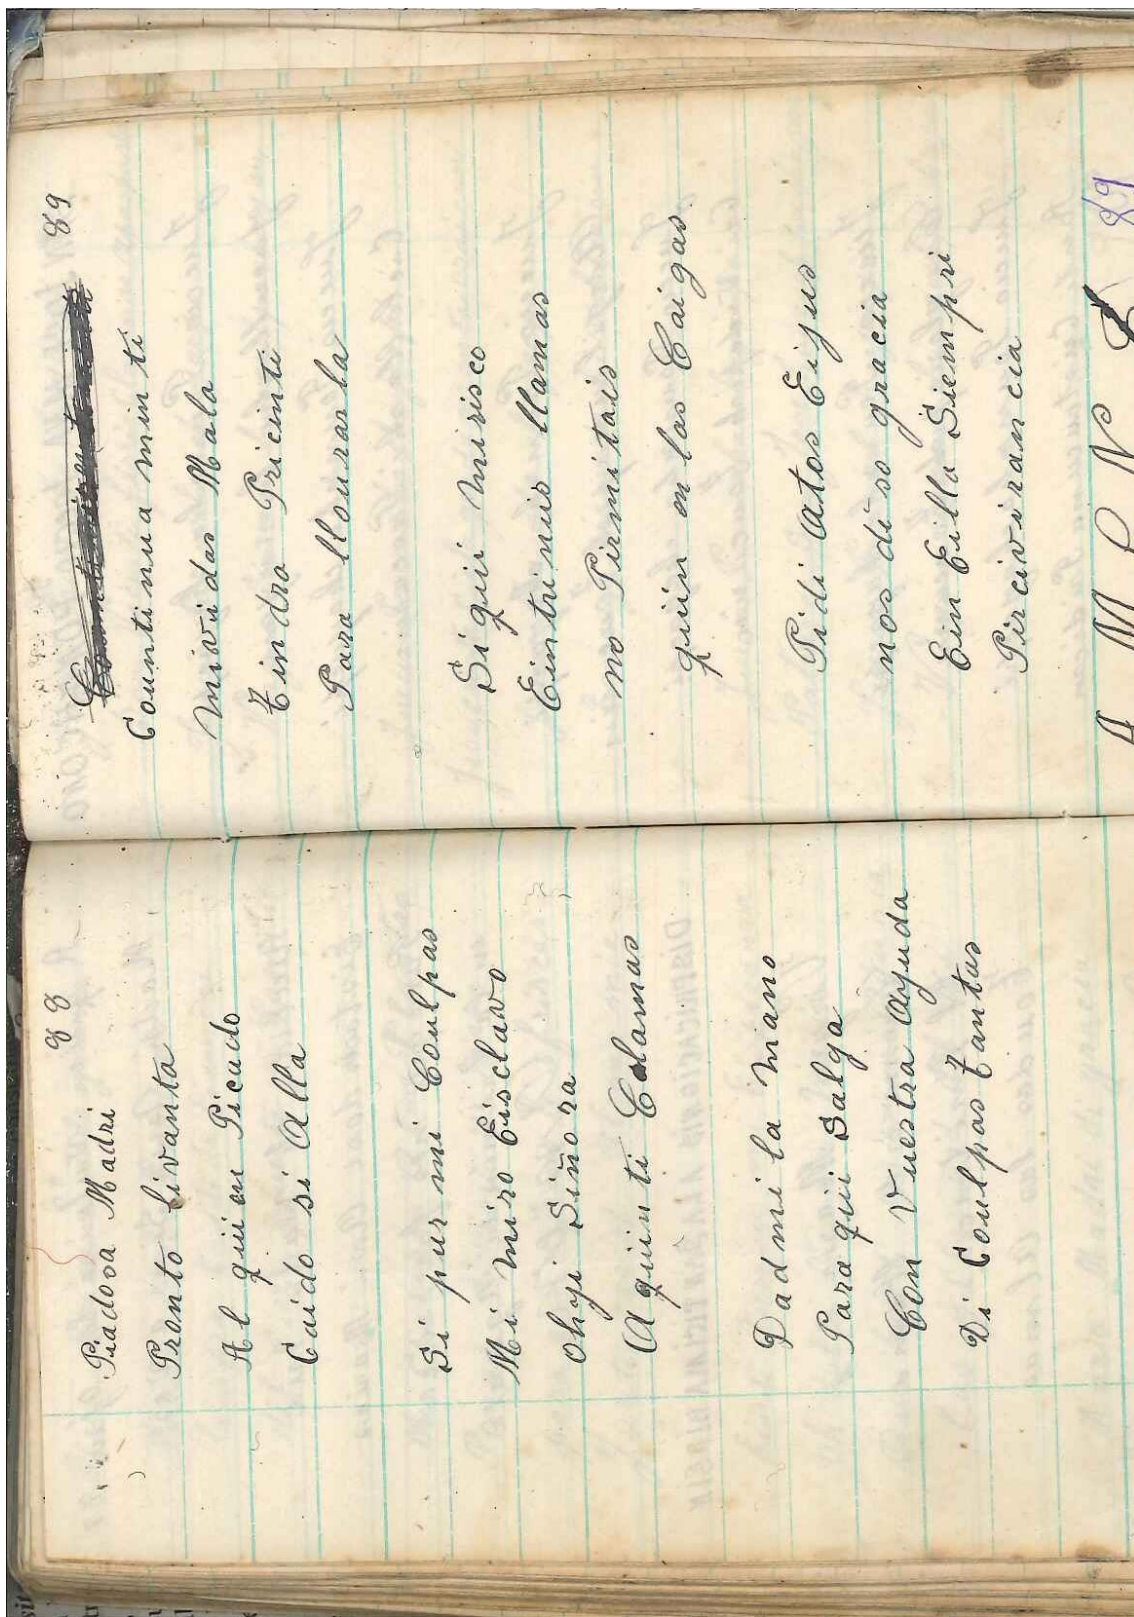 88
Piadosa Madri
Pronto livanta
Al quien Picado
Caido si alla

Si pur mi Coulpas
Mi miro Eisclavo
Ohyi Siñora
A quiin ti Clamas

Dadmi la mano
Para quii Salga
Con Vuestra ayuda
Di Coulpas tantas

89
Countinua minti
mividas Mala
tindra Pricinti
Para llourarla

Si quii mirisco
Eintrinis llamas
no Pirmitais
quiin en las Caigas

Pidi Atos Eijus
nos di so gracia
Ein Eilla Siempri
Pircivirancia
A M P N S 89